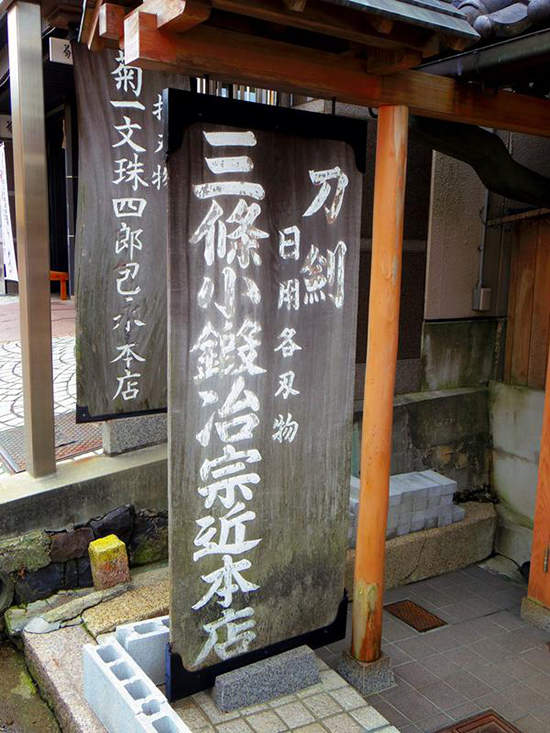 刀剣
日用各刃物
三條小鍛冶宗近本店
打刃物
菊一文珠四郎包永本店